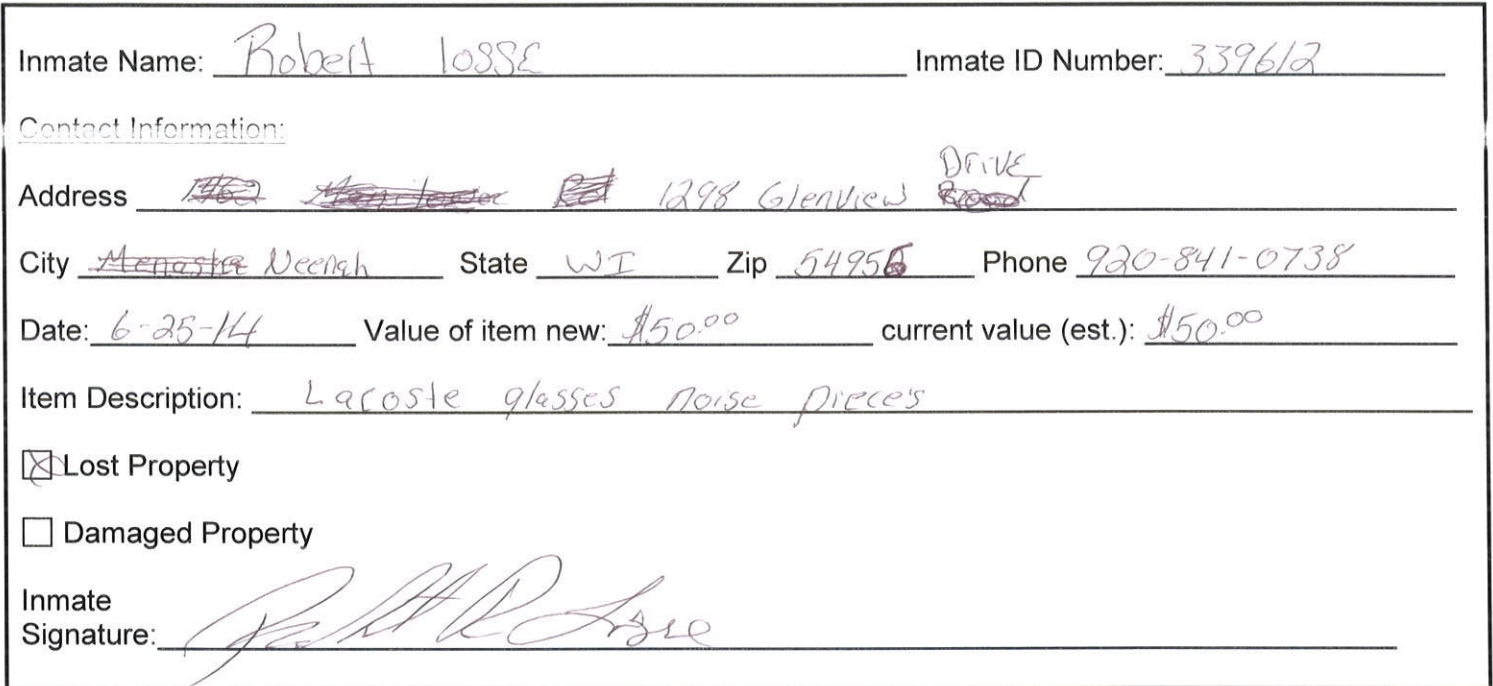 Inmate Name: Robert losse Inmate ID Number: 339612
Contact Information:
Drive
Address 1298 Glenview
City Menasha Neenah State WI Zip 54956 Phone 920-841-0738
Date: 6-25-14 Value of item new: $50.00 current value (est.): $50.00
Item Description: Lacoste glasses noise pieces
Lost Property
Damaged Property
Inmate
Signature: Robert R Losse